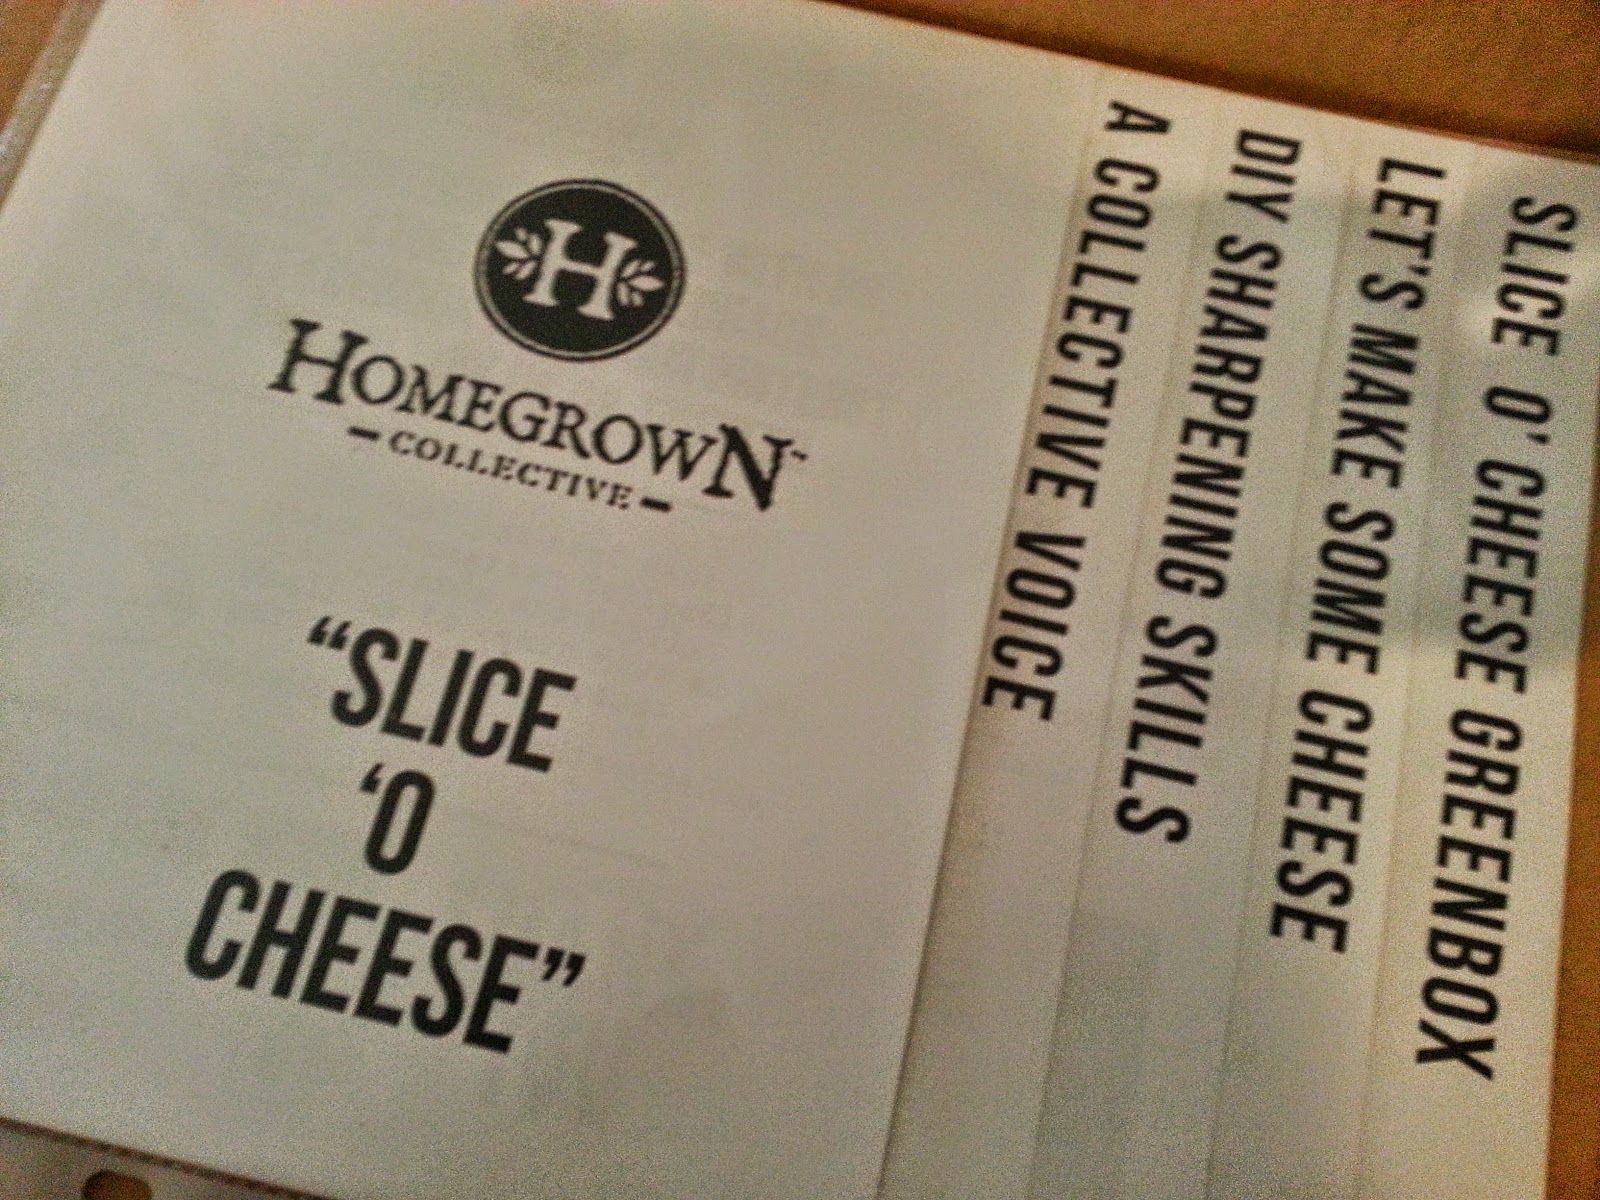 H
HOMEGROWN™
- COLLECTIVE -
“SLICE
‘O
CHEESE”
A COLLECTIVE VOICE
DIY SHARPENING SKILLS
LET'S MAKE SOME CHEESE
SLICE O' CHEESE GREENBOX